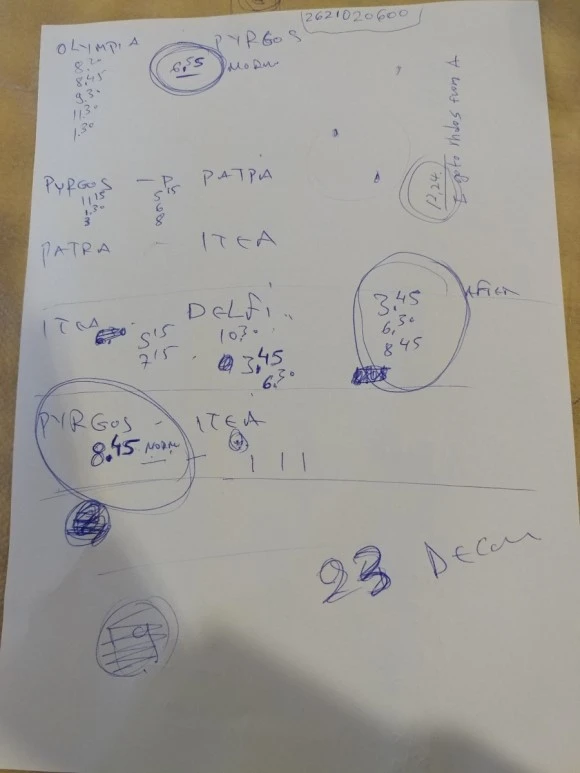 2621020600
OLYMPIA PYRGOS
8.30
8.45
9.30
11.30
1.30
6.55 MORN
PYRGOS - PATPA
11.15
1.30
3
5.15
6
8
PATRA - ITEA
ITEA DELFI
5.15
7.15
10.30
3.45
6.30
3.45
6.30
8.45
AFTER
PYRGOS - ITEA
8.45 MORN
23